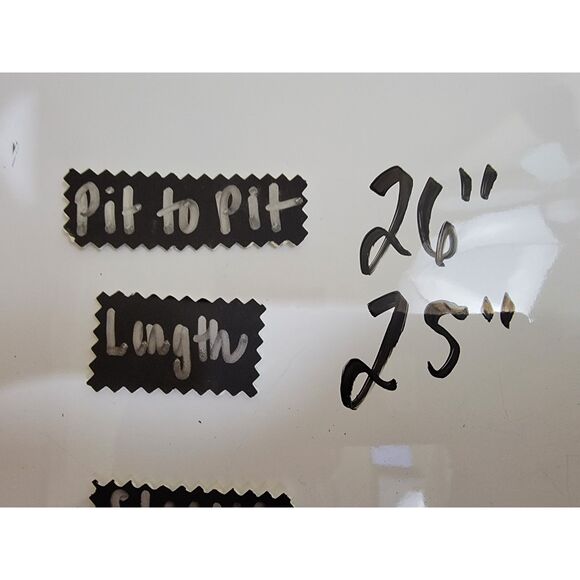 Pit to Pit 26"
Length 25"